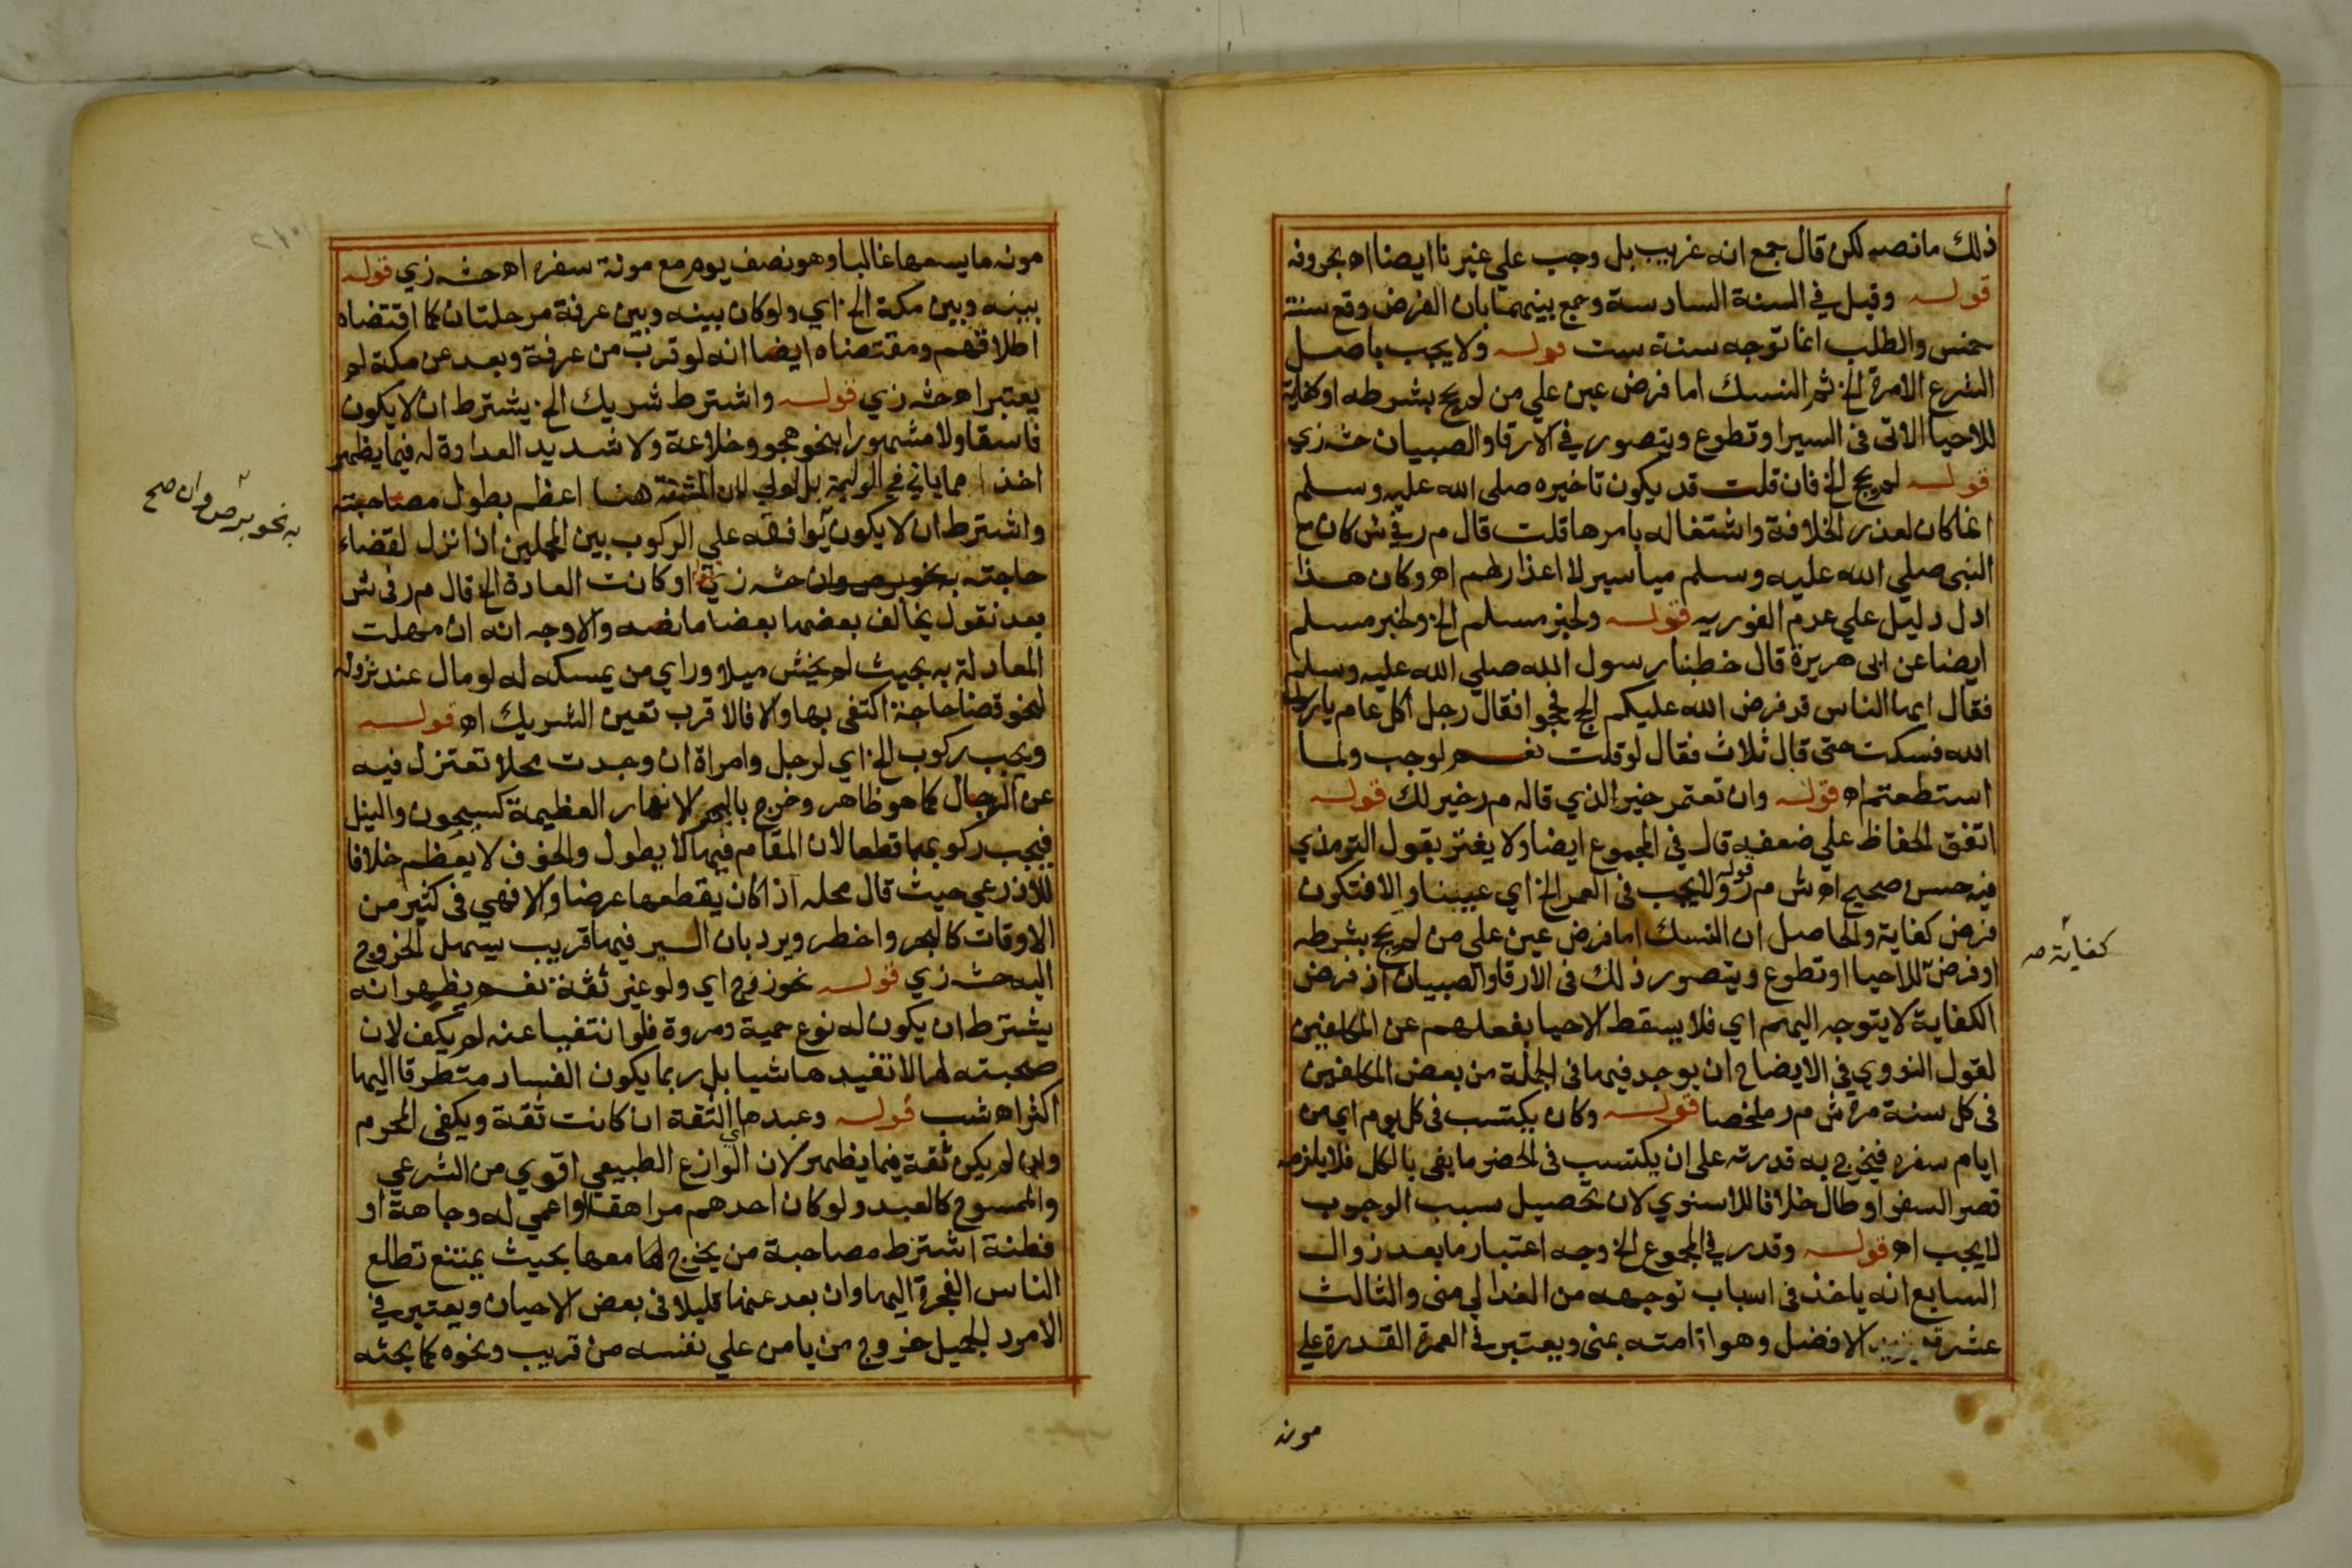 ذلك مانصه لكن قال جمع انه غريب بل وجب علي غيرنا ايضا اه بحروفه
قوله وقيل في السنة السادسة وجمع بينهما بان الفرض وقع سنة
خمس والطلب انما توجه سنة ست قوله ولا يجب باصل
الشرع الامرة الخ ثم النسك اما فرض عين علي من لم يحج بشرطه او كفاية
للاحيا الاتى فى السير او تطوع ويتصور في الارقا والصبيان حشـ زي
قوله لم يحج الخ فان قلت قد يكون تاخيره صلى الله عليه وسلم
انما كان لعذر الخلافة واشتغاله بامرها قلت قال م ر في ش كان مع
النبي صلي الله عليه وسلم مياسير لا اعذار لهم اه وكان هذا
ادل دليل علي عدم الفوريه قوله ولخبر مسلم الخ ولخبر مسلم
ايضا عن ابى هريرة قال خطبنا رسول الله صلي الله عليه وسلم
فقال ايها الناس قد فرض الله عليكم الحج فحجوا فقال رجل اكل عام يارسول
الله فسكت حتى قال ثلاث فقال لو قلت نعم لوجب ولما
استطعتم اه قوله وان تعتمر خير الذي قاله م ر خير لك قوله
اتفق الحفاظ علي ضعفه قال في المجموع ايضا ولا يغتر بقول الترمذي
فيه حسن صحيح اه ش م ر قوله ولا يجب فى العمر الخ اي عيينا والا فتكون
فرض كفاية والحاصل ان النسك اما فرض عين علي من لم يحج بشرطه
او فرض للاحيا او تطوع ويتصور ذلك فى الارقا والصبيان اذ فرض
كفاية صـ
الكفاية لا يتوجه اليهم اي فلا يسقط الاحيا بفعلهم عن المكلفين
لقول النووي في الايضاح ان يوجد فيها فى الجملة من بعض المكلفين
فى كل سنة مرة ش م ر ملخصا قوله وكان يكتسب فى كل يوم اي من
ايام سفره فيخرج به قدرته على ان يكتسب فى الحضر ما يفى بالكل فلا يلزمه
قصر السفر او طال خلافا للاسنوي لان تحصيل سبب الوجوب
لا يجب اه قوله وقدر في المجموع الخ وجه اعتبار ما بعد زوال
السابع انه ياخذ فى اسباب توجهه من الغد الي منى والثالث
عشر الافضل وهو اقامته بمنى ويعتبر في العمرة القدرة علي
مونه
مونه ما يسعها غالبا وهو نصف يوم مع مونة سفره اه حشـ زي قوله
بينه وبين مكة الخ اي ولو كان بينه وبين عرفة مرحلتان كما اقتضاه
اطلاقهم ومقتضاه ايضا انه لو قرب من عرفة وبعد عن مكة لم
يعتبر اه حشـ زي قوله واشترط شريك الخ يشترط ان لا يكون
فاسقا ولا مشهورا بنحو هجو وخلاعة ولا شديد العداوة له فيما يظهر
اخذا مما ياتي في الوليمة بل اولي لان المشقة هنا اعظم بطول مصاحبته
واشترط ان لا يكون يوافقه علي الركوب بين المحملين اذا نزل لقضاء
به نحو برص وان صح
حاجته بنحو برص وان حشـ زي او كانت العادة الخ قال م ر فى ش
بعد نقول يخالف بعضها بعضا مانصه والاوجه انه ان سهلت
المعادلة به بحيث لم يخش ميلا وراي من يمسكه له لو مال عند نزوله
لنحو قضا حاجة اكتفى بها والا فالاقرب تعين الشريك اه قوله
ويجب ركوب الخ اي لرجل وامراة ان وجدت محلا تعتزل فيه
عن الرجال كما هو ظاهر وخرج بالبحر الانهار العظيمة كسيحون والنيل
فيجب ركوبها قطعا لان المقام فيها لا يطول والخوف لا يعظم خلافا
للاذرعي حيث قال محله اذا كان يقطعها عرضا والا فهي فى كثير من
الاوقات كالبحر واخطر ويرد بان السير فيها قريب يسهل الخروج
اليه حشـ زي قوله نحو زوج اي ولو غير ثقة نعم يظهر انه
يشترط ان يكون له نوع حمية ومروة فلو انتفيا عنه لم يكف لان
صحبته لها لا تفيدها شيا بل ربما يكون الفساد متطرقا اليها
اكثر اه شب قوله وعبدها اي الثقة ان كانت ثقة ويكفى المحرم
وان لم يكن ثقة فيما يظهر لان الوازع الطبيعي اقوي من الشرعي
والممسوح كالعبد ولو كان احدهم مراهقا او اعمي له وجاهة او
فطنة اشترط مصاحبة من يخرج لها معها بحيث يمتنع تطلع
الناس الفجرة اليها وان بعد عنها قليلا فى بعض الاحيان ويعتبر في
الامرد الجميل خروج من يامن علي نفسه من قريب ونحوه كما بحثه